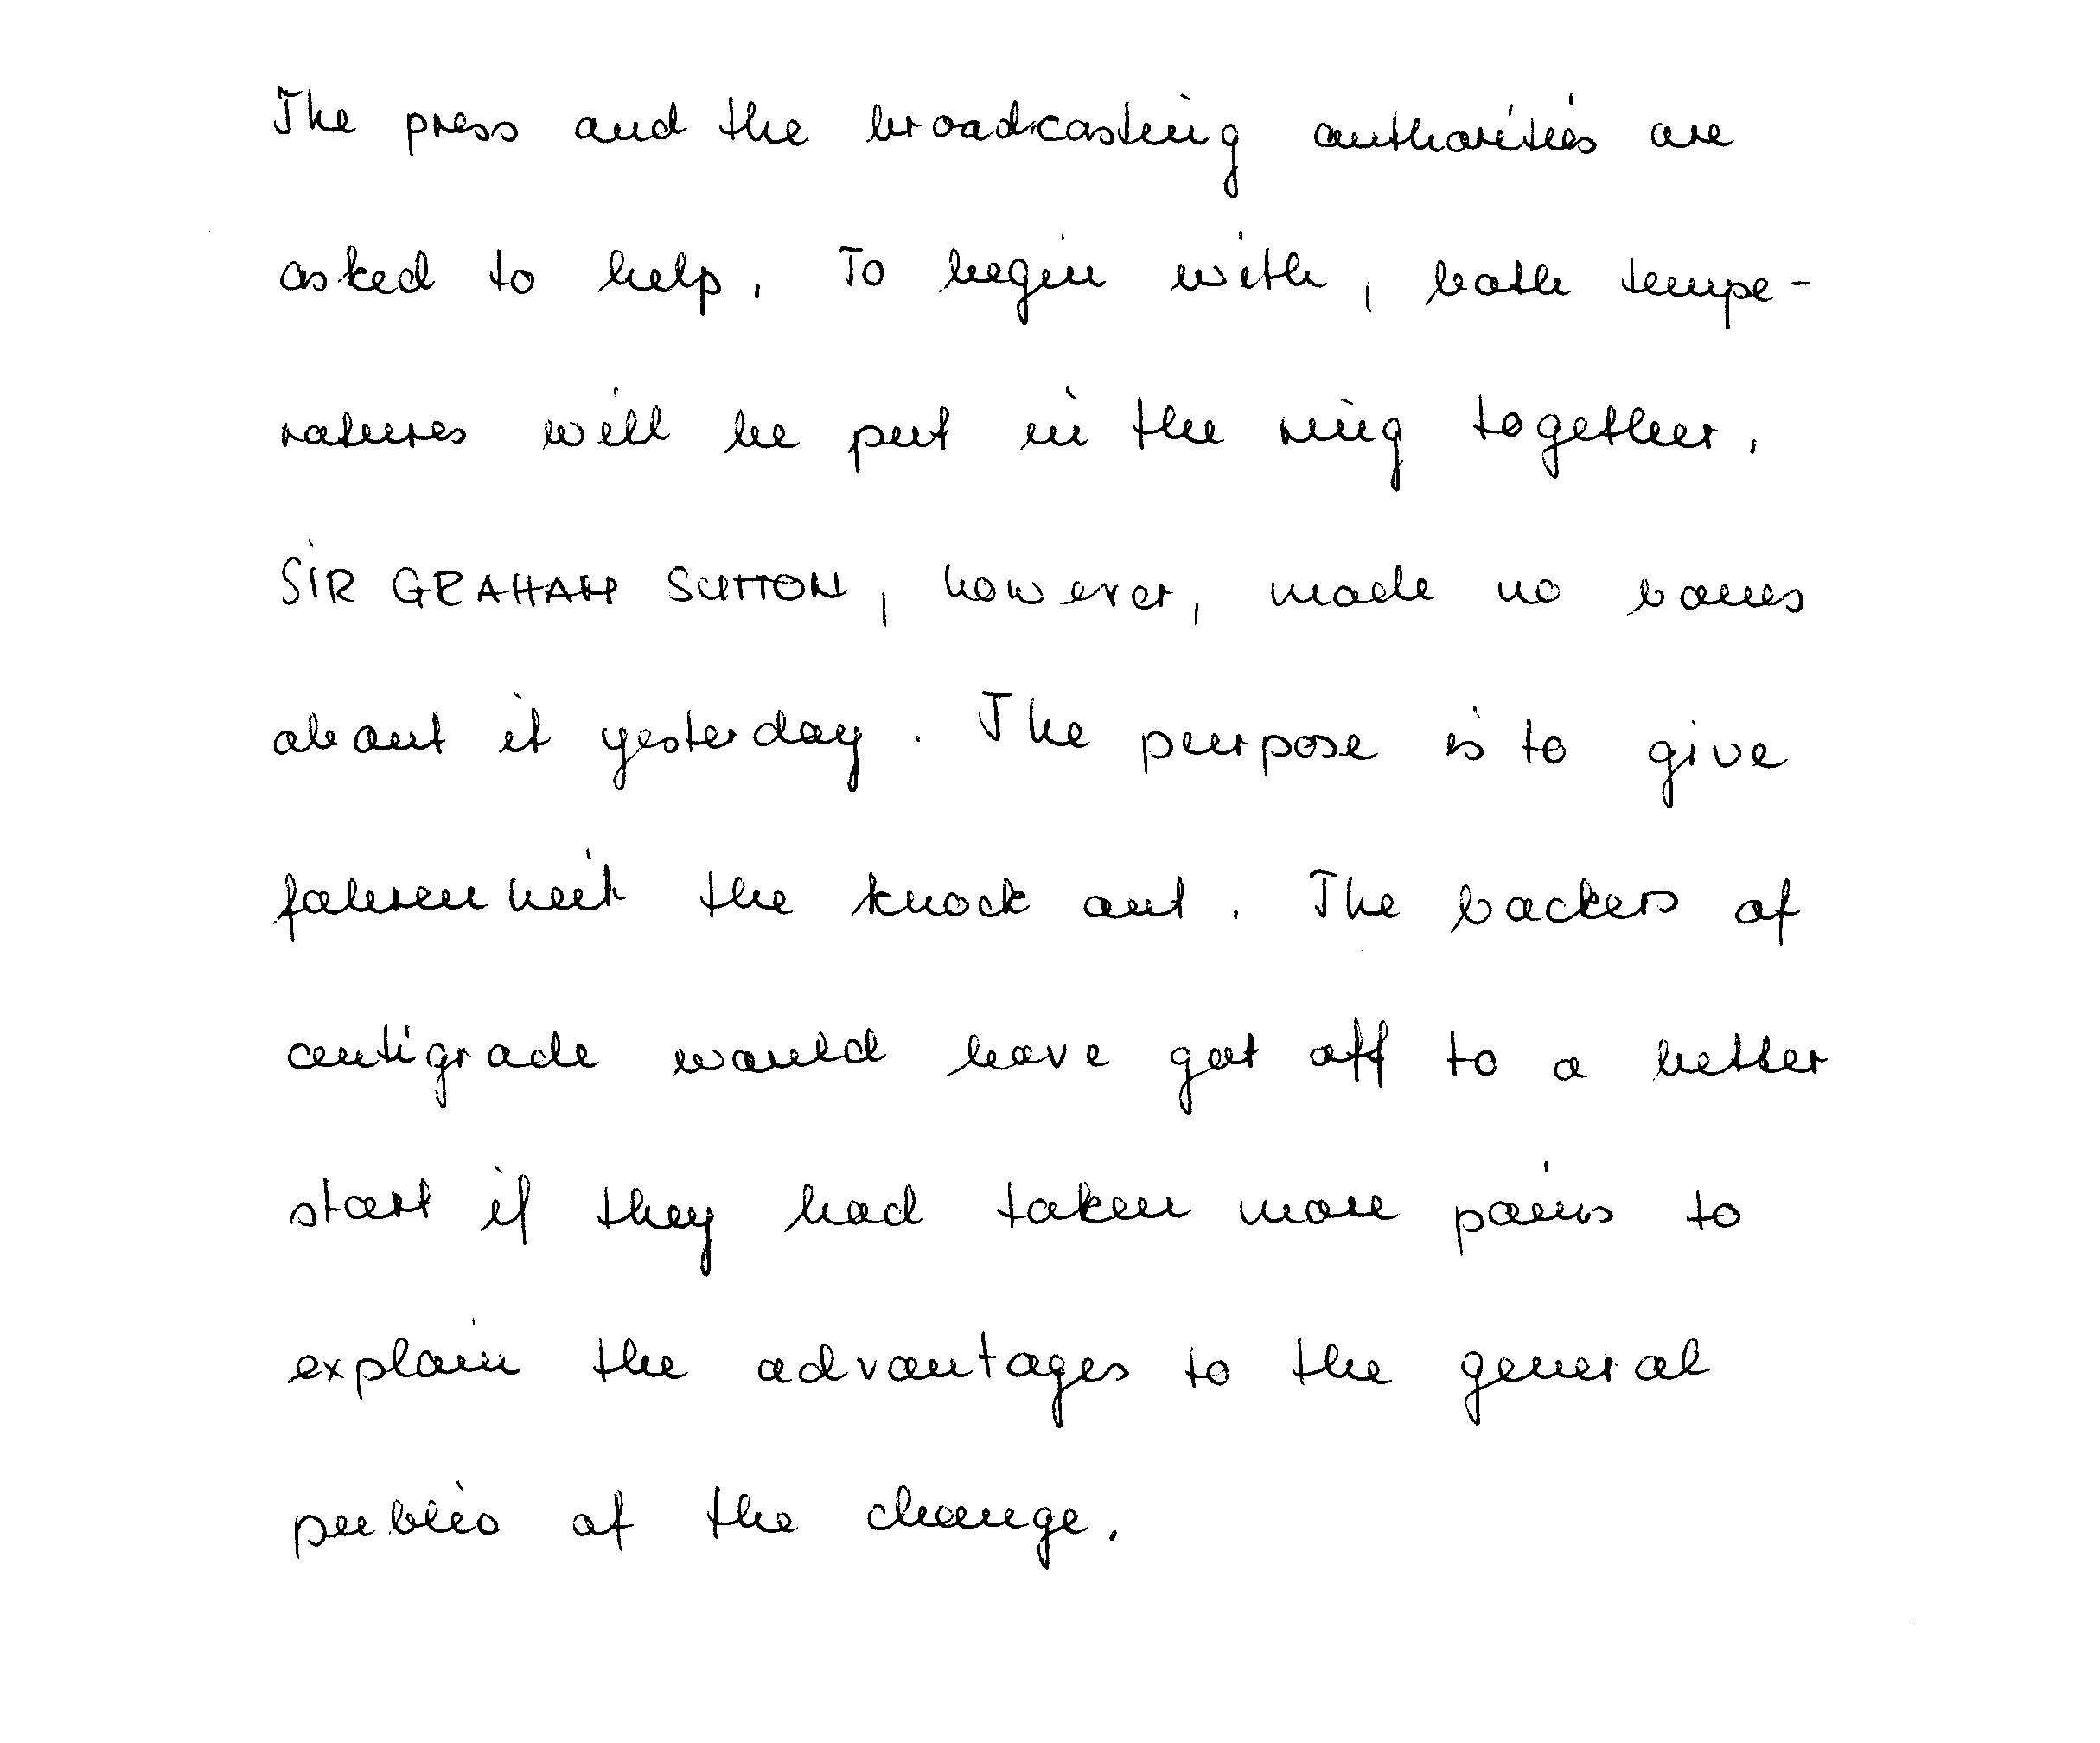 The press and the broadcasting authorities are
asked to help. To begin with, both tempe-
ratures will be put in the ring together.
SIR GRAHAM SUTTON, however, made no bones
about it yesterday. The purpose is to give
fahrenheit the knock out. The backers of
centigrade would have got off to a better
start if they had taken more pains to
explain the advantages to the general
public of the change.